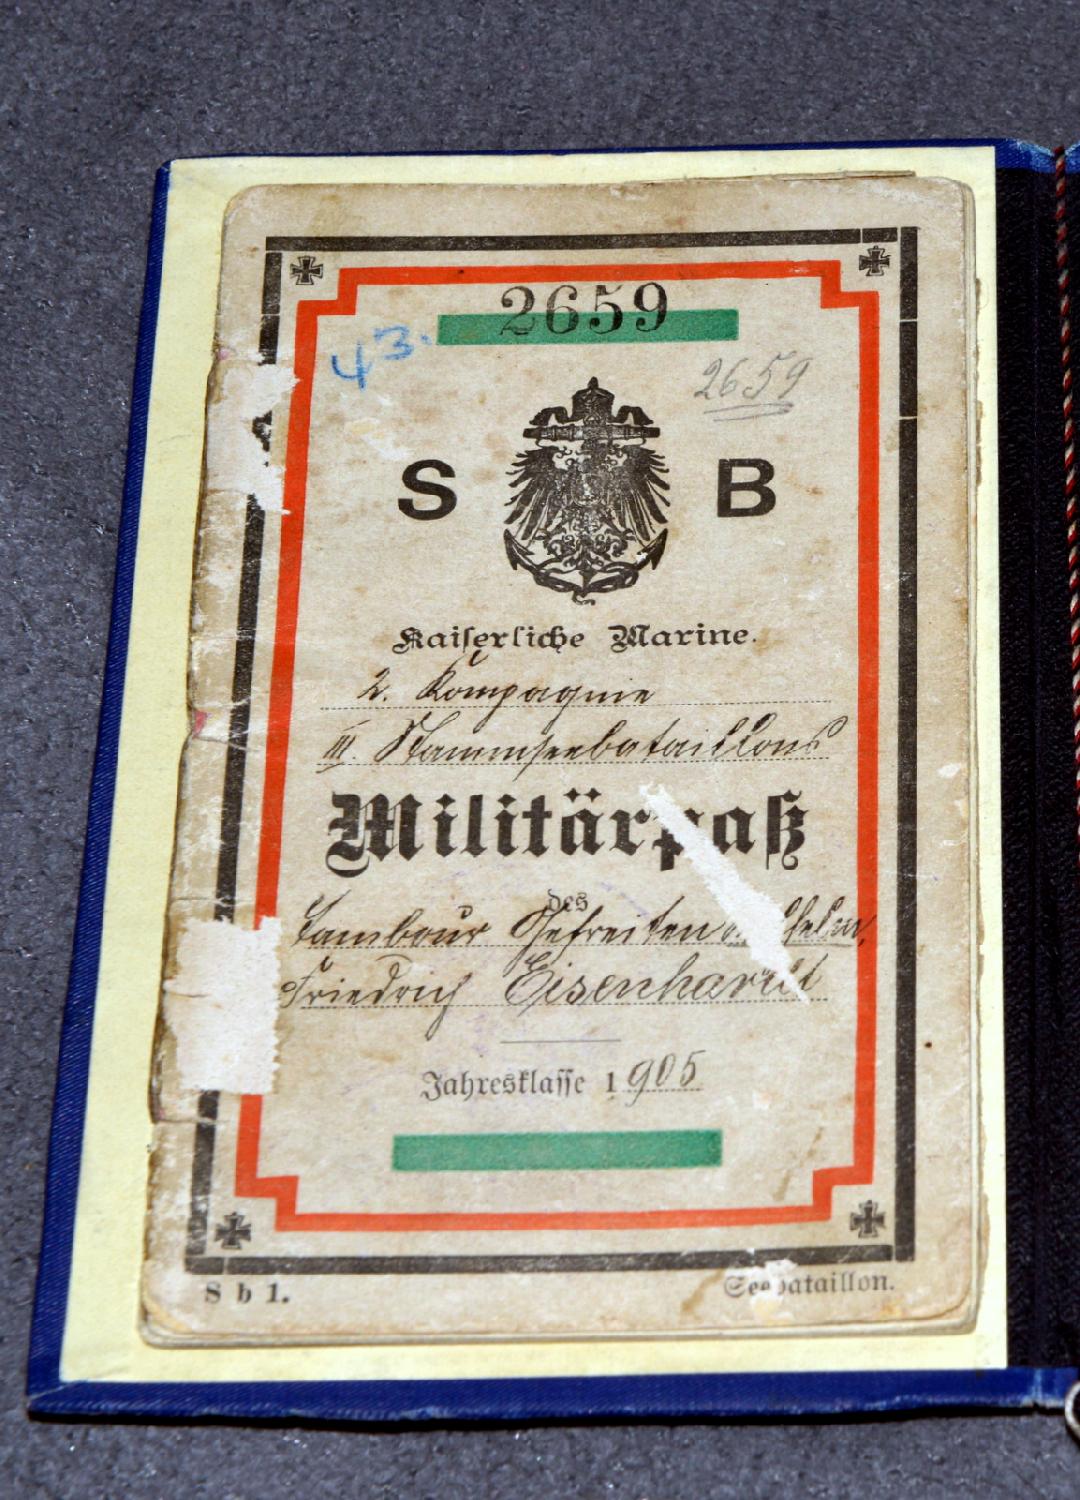 2659
43.
2659
S B
Kaiserliche Marine.
2. Kompagnie
III. Stammseebataillons
Militärpaß
des
Tambour Gefreiten
Friedrich Eisenhardt
Jahresklasse 1905
S b 1.
Seebataillon.